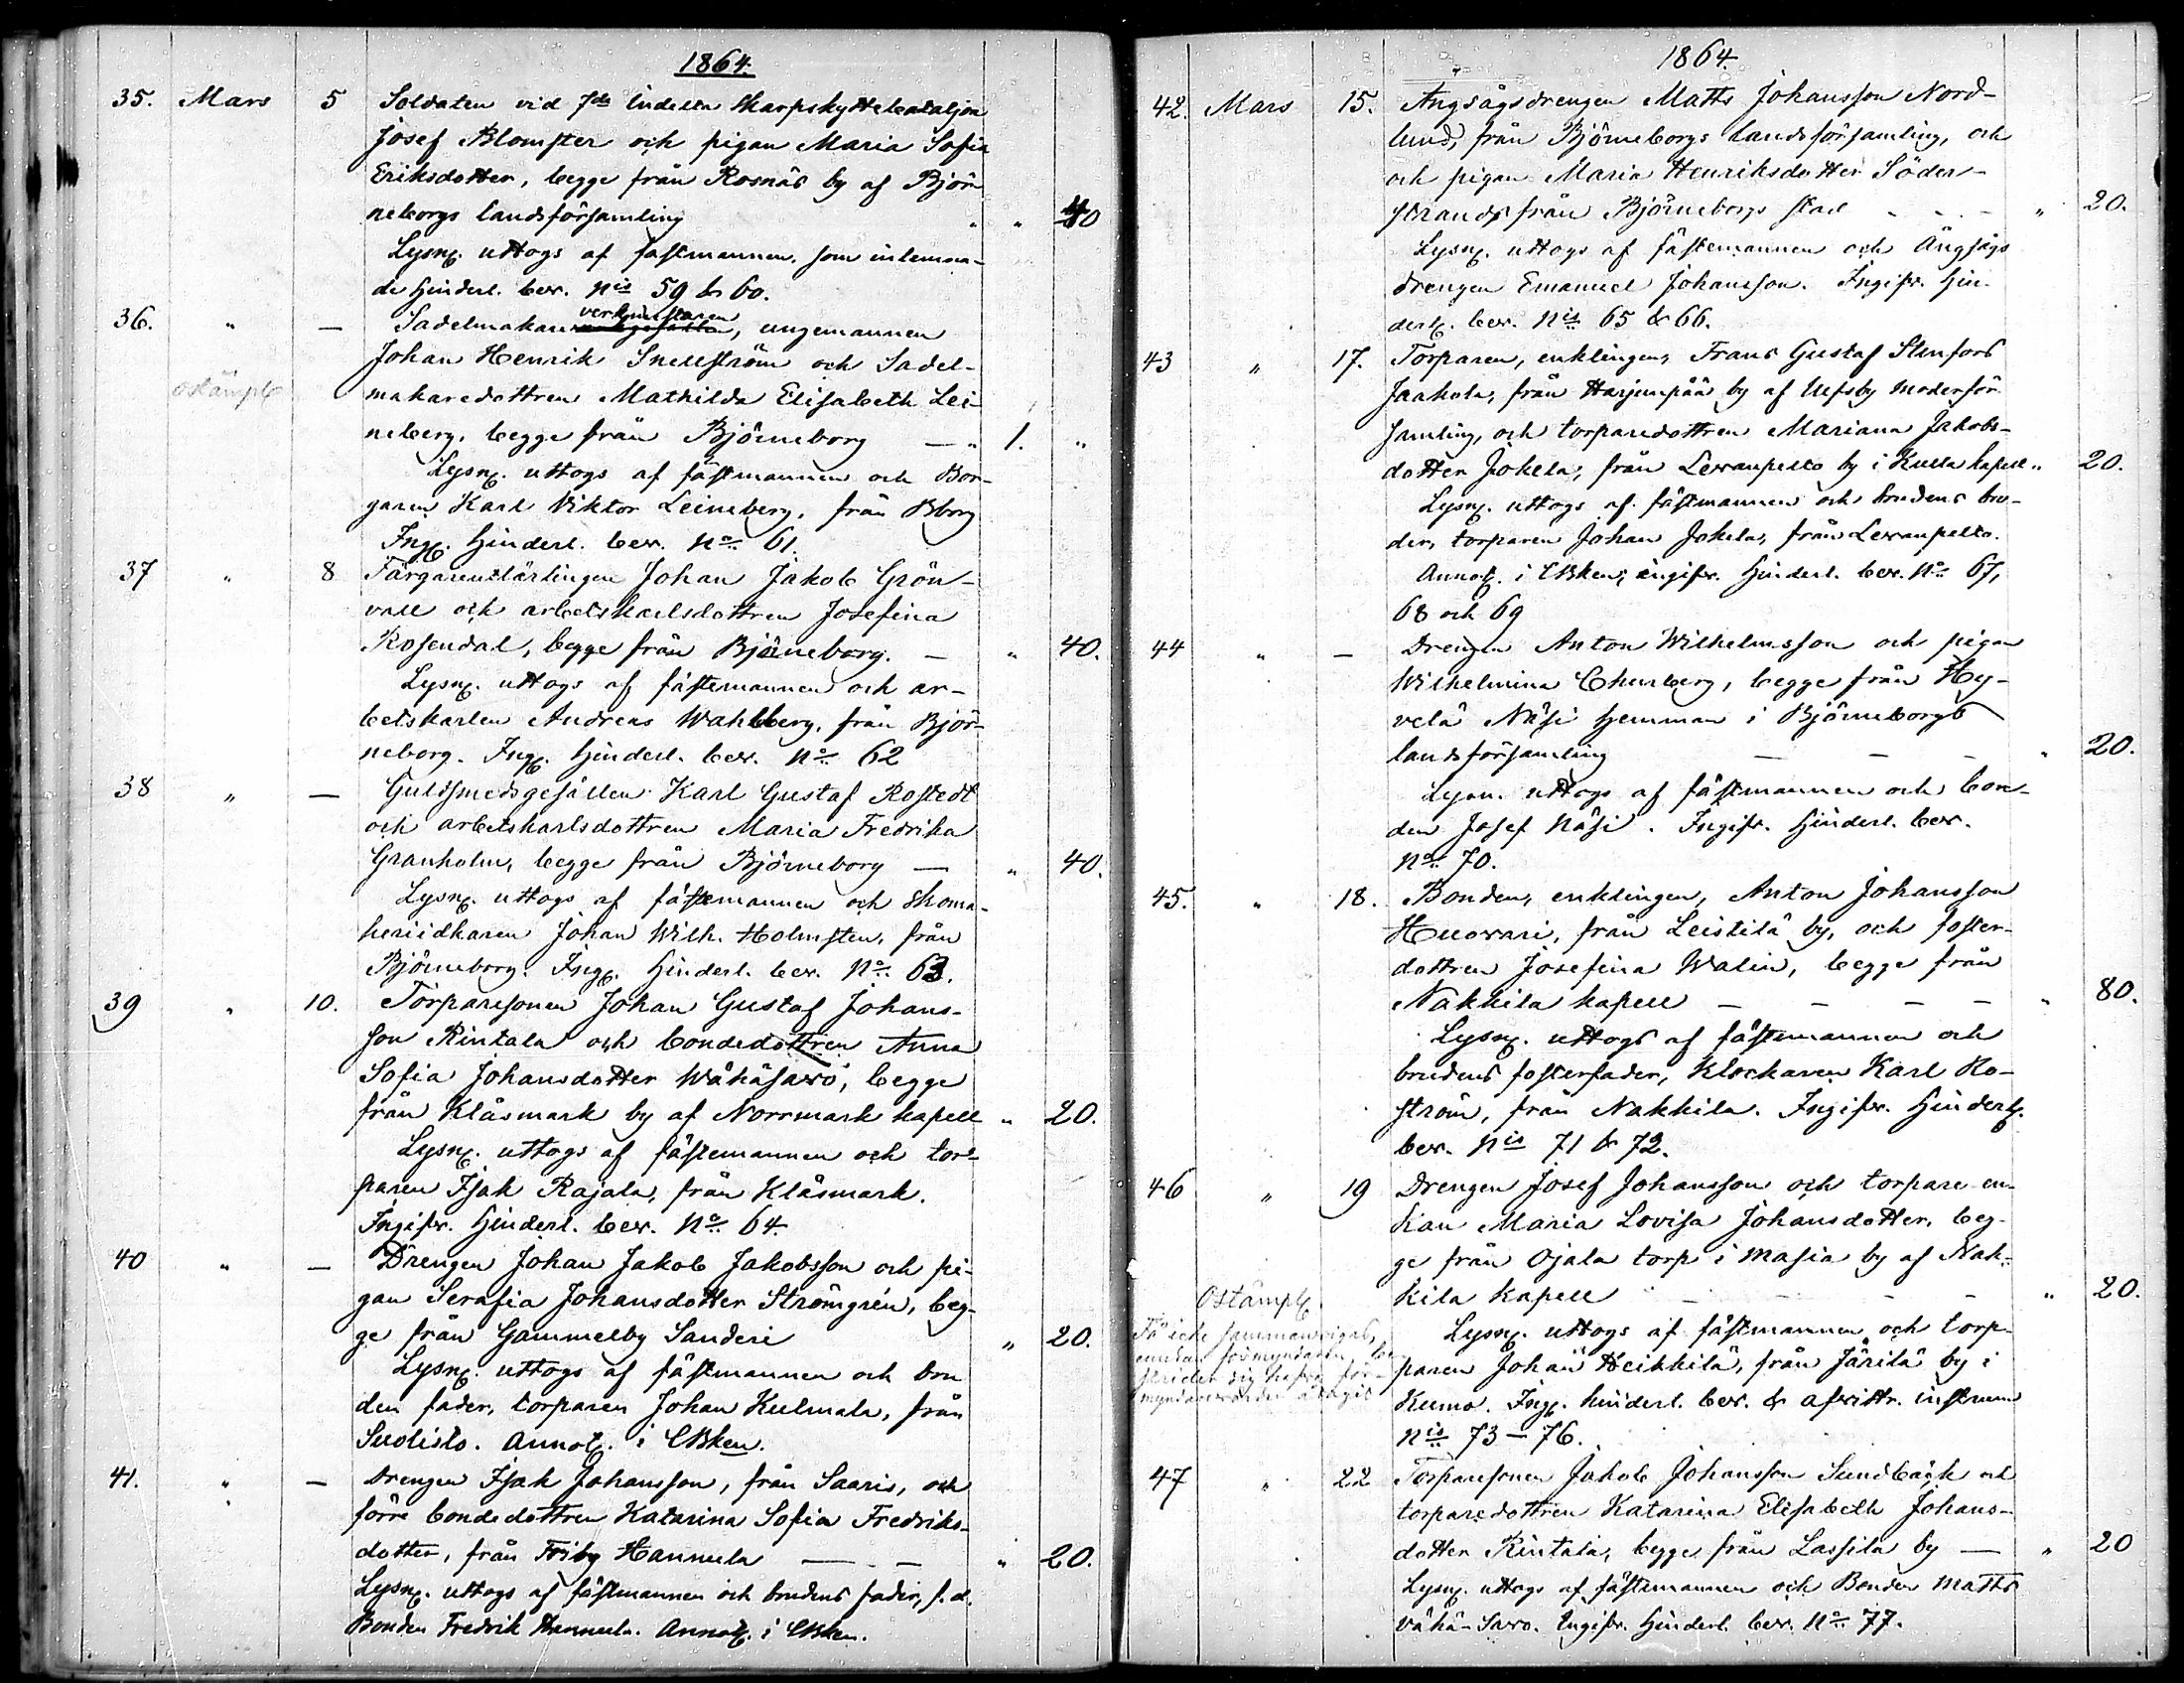 1864.
35. Mars 5 Soldaten vid 7de indelta Skarpskyttebataljon
Josef Blomster och pigan Maria Sofia
Eriksdotter, begge från Rosnäs by af Björ-
neborgs landsförsamling " " 40
Lysng. uttogs af fästmannen, som inlemna-
de hinderl. bev. Nis 59 & 60.
36. " — Sadelmakare verkmästaren, ungemannen
Johan Henrik Snellström och Sadel-
ostämpl makaredottren Mathilda Elisabeth Lei-
neberg, begge från Björneborg — " 1. "
Lysng. uttogs af fästmannen och Bor-
garen Karl Viktor Leineberg, från Bborg
Ingf. Hinderl. bev. No 61.
37 " 8 Färgarenslärlingen Johan Jakob Grön-
vall och arbetskarlsdottren Josefina
Rosendal, begge från Björneborg. — " 40.
Lysng. uttogs af fästemannen och ar-
betskarlen Andreas Wahlberg, från Björ-
neborg. Ingf. Hinderl. bev. No 62
38 " — Guldsmedsgesällen Karl Gustaf Rostedt
och arbetskarlsdottren Maria Fredrika
Granholm, begge från Björneborg — " 40.
Lysng. uttogs af fästemannen och Skoma-
keriidkaren Johan Wilh. Holmsten, från
Björneborg. Ingf. Hinderl. bev. No 63.
39 " 10. Torparesonen Johan Gustaf Johans-
son Rintala och bondedottren Anna
Sofia Johansdotter Wähäsavo, begge
från Klåsmark by af Norrmark kapell " 20.
Lysng. uttogs af fästemannen och tor-
paren Isak Rajala, från Klåsmark.
Ingifv. Hinderl. bev. No 64.
40 " — Drengen Johan Jakob Jakobsson och pi-
gan Serafia Johansdotter Strömgrén, beg-
ge från Gammelby Sanderi " 20.
Lysng. uttogs af fästmannen och bru
den fader, torparen Johan Kulmala, från
Suolisto. Annot. i CBken.
41. " — Drengen Isak Johansson, från Saaris, och
förre bondedottren Katarina Sofia Fredriks-
dotter, från Friby Hannula — — " 20.
Lysng. uttogs af fästmannen och brudens fader, f.d.
Bonden Fredrik Hannula. Annot. i CBken.
1864.
42. Mars 15. Ångsågsdrengen Matts Johansson Nord-
lund, från Björneborgs landsförsamling, och
och pigan Maria Henriksdotter Söder-
strand, från Björneborgs stad - - - " 20.
Lysng. uttogs af fästemannen och Ångsågs
drengen Emanuel Johansson. Ingifv. Hin-
derl. bev. Nis 65 & 66.
43 " 17. Torparen, enklingen, Frans Gustaf Stenfors
Jaakola, från Harjunpää by af Ulfsby moderför-
samling, och torparedottren Mariana Jakobs-
dotter Jokela, från Levanpelto by i Kulla kapell " 20.
Lysng. uttogs af fästmannen och brudens bro-
der, torparen Johan Jokela, från Levanpelto.
Annot. i CBken; ingifv. Hinderl. bev. No 67,
68 och 69
44 " — Drengen Anton Wilhelmsson och pigan
Wilhelmina Churberg, begge från Hy-
velä Näsi hemman i Björneborgs
landsförsamling — — — " 20.
Lysn. uttogs af fästmannen och bon-
den Josef Näsi. Ingifv. Hinderl. bev.
No 70.
45. " 18. Bonden, enklingen, Anton Johansson
Huovari, från Leistilä by, och foster-
dottren Josefina Walin, begge från
Nakkila kapell — — — — " 80.
Lysng. uttogs af fästemannen och
brudens fosterfader, Klockaren Karl Ro-
ström, från Nakkila. Ingifv. Hinderl.
bev. Nis 71 & 72.
46 " 19 Drengen Josef Johansson och torpare en-
kan Maria Lovisa Johansdotter, beg-
ge från Ojala torp i Masia by af Nak-
Ostämpl. kila kapell — — — — " 20.
Få icke sammanvigas,
Lysng. uttogs af fästmannen och torp-
paren Johan Heikkilä, från Järilä by i
Kumo. Ingf. hinderl. bev. & afvittr. instrum
Nis 73 – 76.
47 " 22 Torparesonen Jakob Johansson Sundbäck och
torparedottren Katarina Elisabeth Johans-
dotter Rintala, begge från Lassila by — " 20
Lysng. uttogs af fästemannen och Bonden Matts
Vähä-Savo. Ingifv. Hinderl. bev. No 77.